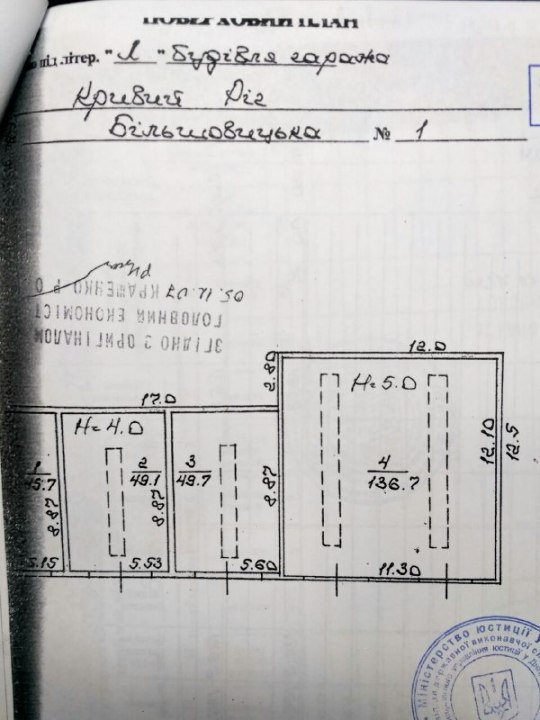 ПОВЕРХОВИЙ ПЛАН
під літер. "Л" Будівля гаража
Кривий Ріг
Більшовицька № 1
ЗГІДНО З ОРИГІНАЛОМ
ГОЛОВНИЙ ЕКОНОМІСТ
12.0
2.80
H=5.0
17.0
H=4.0
1
45.7
2
49.1
3
49.7
4
136.7
8.87
8.87
8.87
12.10
12.5
5.15
5.53
5.60
11.30
Міністерство юстиції У